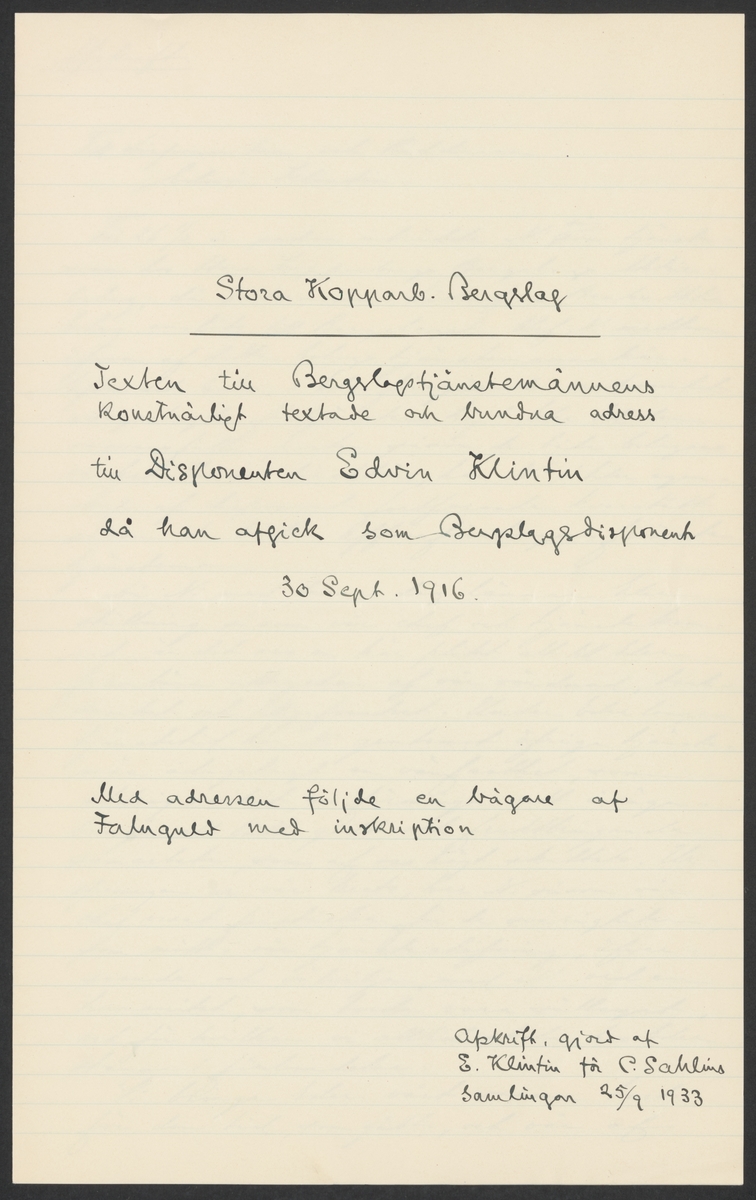 Stora Kopparb. Bergslag
Texten till Bergslagstjänstemännens
konstnärligt textade och bundna adress
till Disponenten Edvin Klintin
då han afgick som Bergslagsdisponent
30 Sept. 1916.
Med adressen följde en bägare af
Faluguld med inskription
Afskrift, gjord af
E. Klintin för C. Sahlins
samlingar 25/9 1933